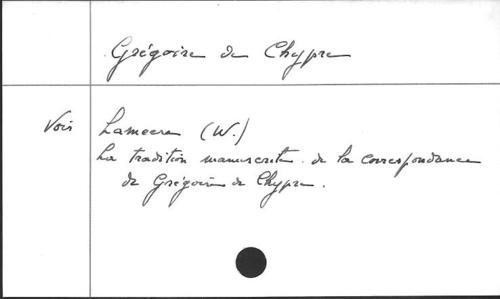 Grégoire de Chypre
Voir Lameere (W.)
La tradition manuscrite de la correspondance
de Grégoire de Chypre.